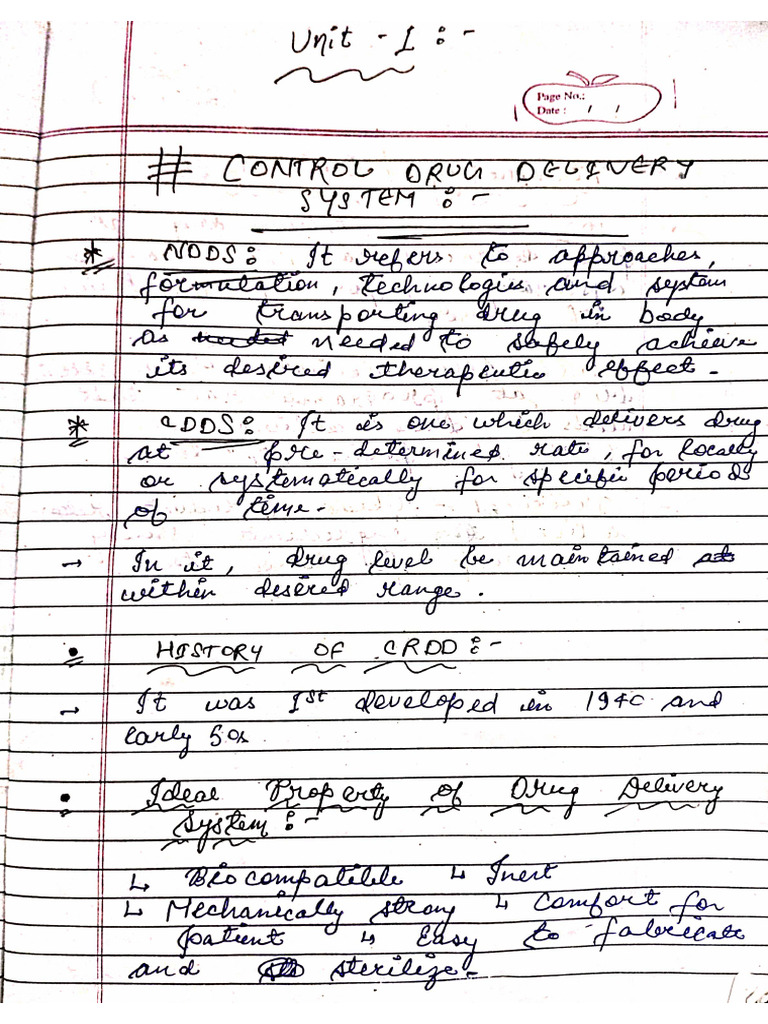 Unit - I :-
Page No.:
Date : / /
# CONTROL DRUG DELIVERY
SYSTEM :-
* NDDS: It refers to approaches,
formulation, technologies and system
for transporting drug in body
as needed to safely achieve
its desired therapeutic effect.
* CDDS: It is one which delivers drug
at pre-determined rate, for locally
or systematically for specific periods
of time.
→ In it, drug level be maintained
within desired range.
• HISTORY OF CRDD :-
→ It was 1st developed in 1940 and
early 50s
• Ideal Property of Drug Delivery
System :-
↳ Biocompatible ↳ Inert
↳ Mechanically strong ↳ Comfort for
patient ↳ Easy to fabricate
and sterilize.